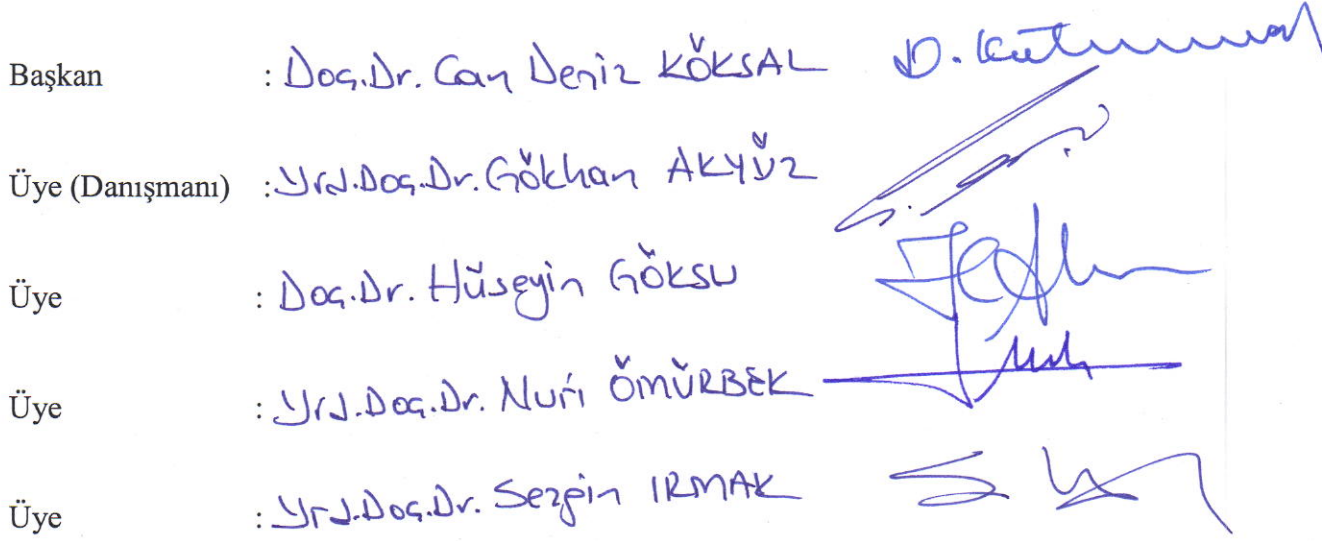 Başkan : Doç.Dr. Can Deniz KÖKSAL
Üye (Danışmanı) : Yrd.Doç.Dr. Gökhan AKYÜZ
Üye : Doç.Dr. Hüseyin GÖKSU
Üye : Yrd.Doç.Dr. Nuri ÖMÜRBEK
Üye : Yrd.Doç.Dr. Sezgin IRMAK